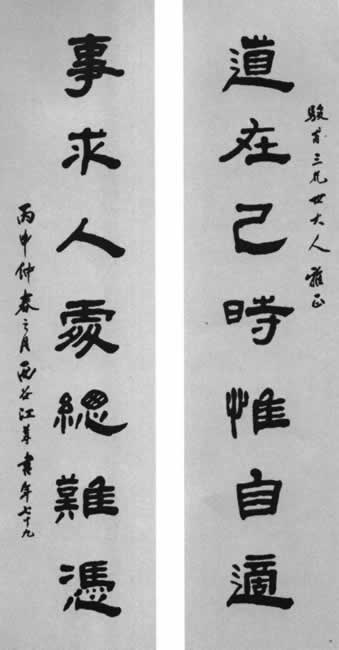 駿甫三兄世大人雅正
道在己時惟自適
事求人處總難憑
丙申仲春之月西谷江書年七十九